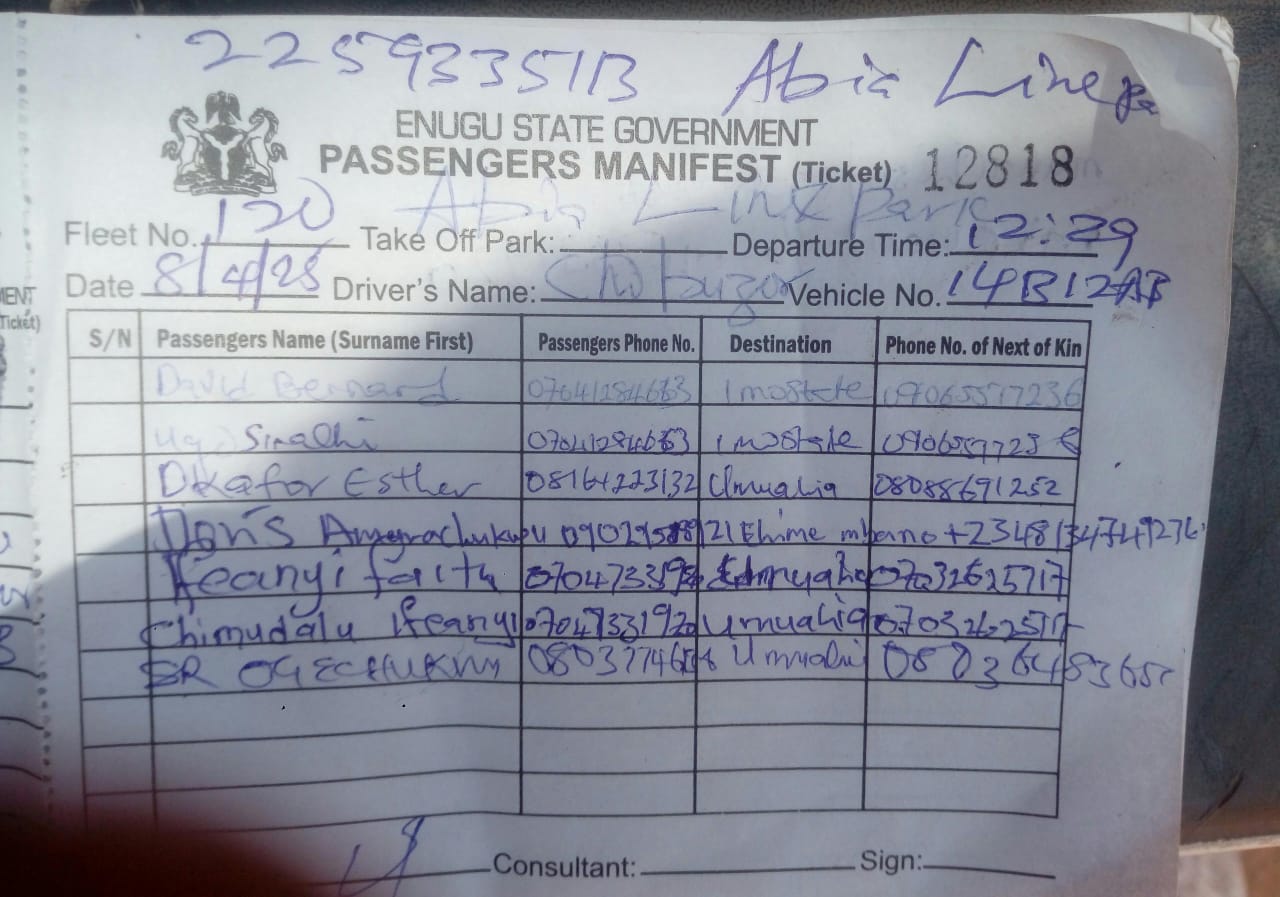 2259335113 Abia Line
ENUGU STATE GOVERNMENT
PASSENGERS MANIFEST (Ticket) 12818
Fleet No. 120 Take Off Park: Abia Line Park Departure Time: 12:29
Date 8/4/25 Driver's Name: Vehicle No. 14B12AB
MENT
Ticket)
S/N Passengers Name (Surname First) Passengers Phone No. Destination Phone No. of Next of Kin
David Bernard Imostate 09065577236
Imostate
Okafor Esther 08164223132 Umuahia 08088691252
Doris Ehime mbano
Ifeanyi faith Umuahia 07032625717
Chimudalu Ifeanyi Umuahia
SR OGECHUKWU
Consultant: Sign: